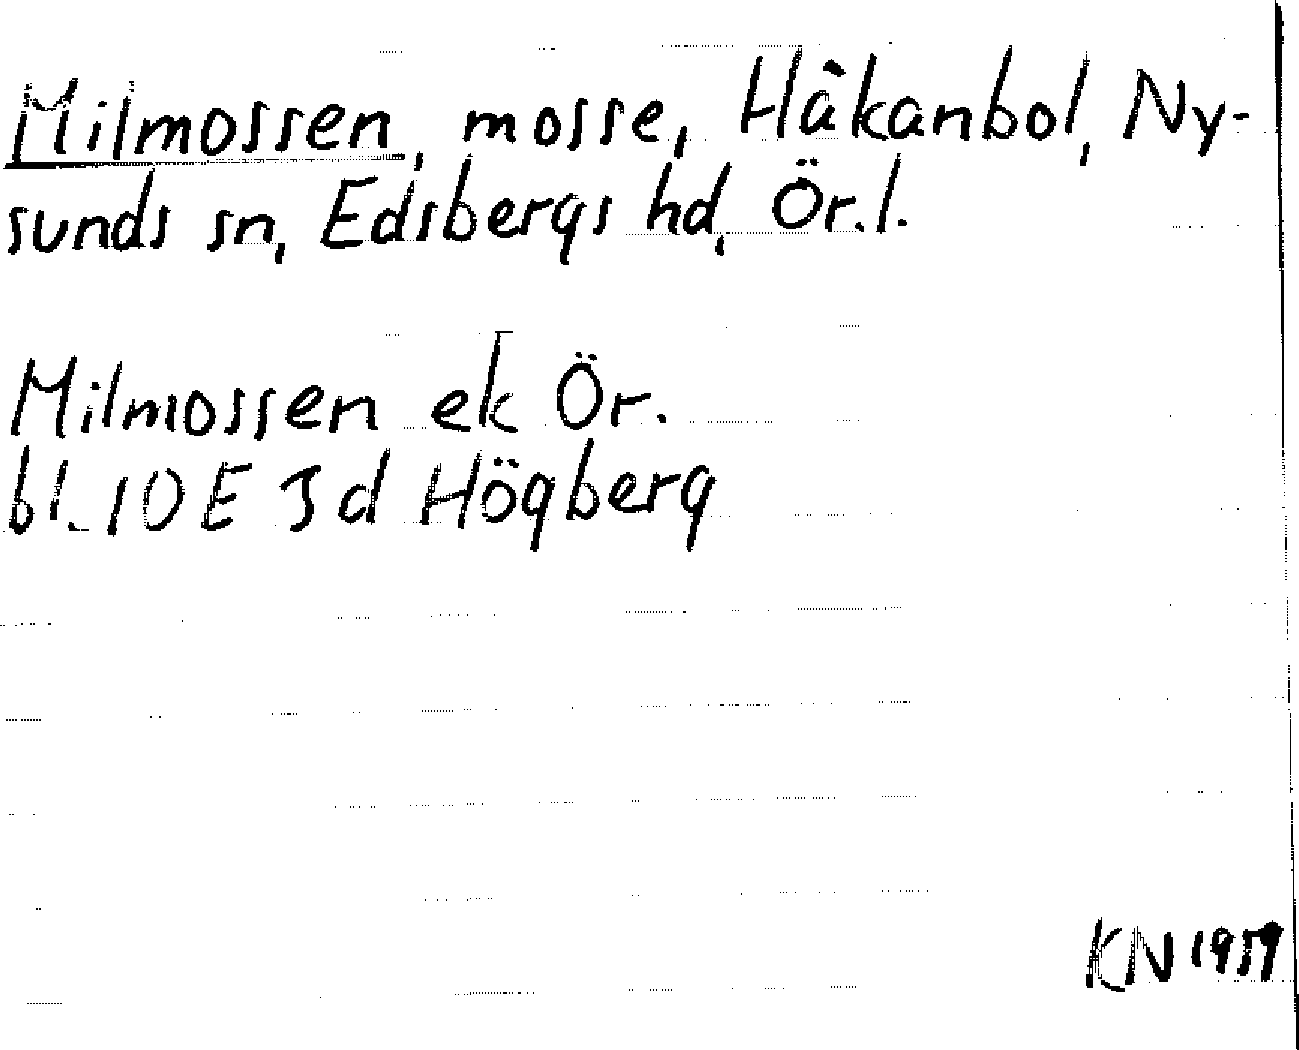 Milmossen, mosse, Håkanbol, Ny-
sunds sn, Edsbergs hd, Ör. l.
Milmossen ek Ör.
bl. 10 E 3 d Högberg
KN 1959